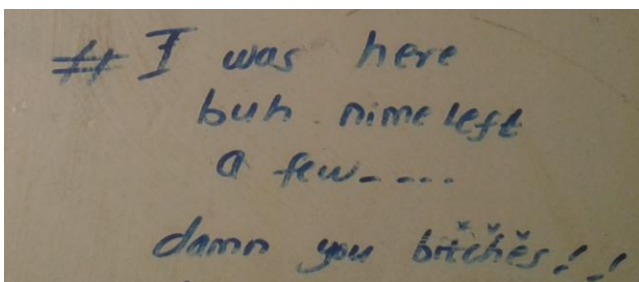 # I was here
buh nime left
a few-----
damn you bitčhěs!!